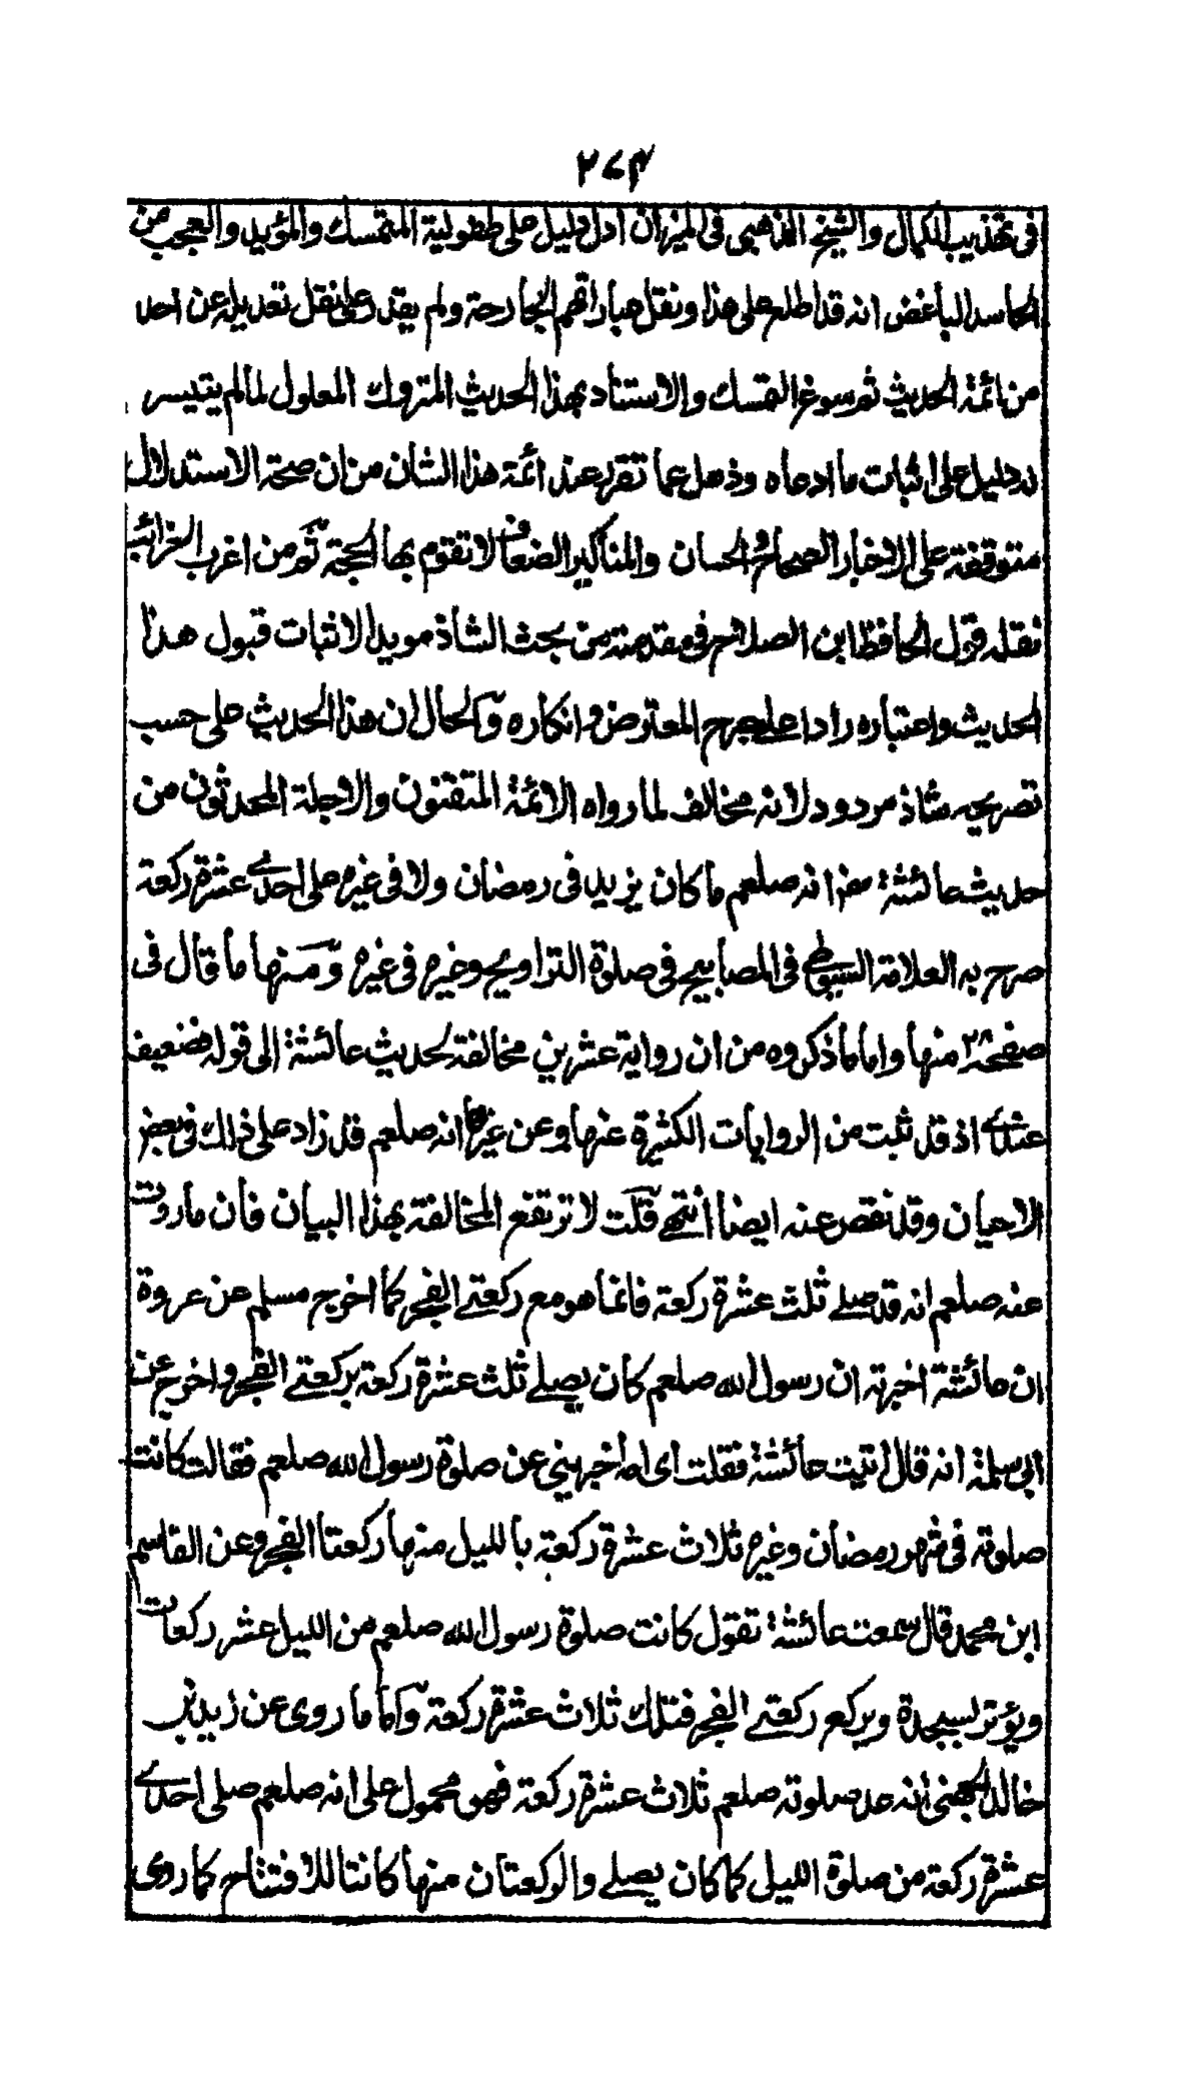 ٢٧٤
فى تهذيب الكمال والشيخ الذهبى فى الميزان ادل دليل على طفولية المتمسك والمؤيد والعجب من
الحاسد الباغض انه قد اطلع على هذا ونقل عباراتهم الجارحة ولم يقدر على نقل تعديله عن احد
من ائمة الحديث ثم سوغ التمسك والاستناد بهذا الحديث المتروك المعلول لما لم يتيسر
له دليل على اثبات ما ادعاه وذهل عما تقرر عند ائمة هذا الشان من ان صحة الاستدلال
متوقفة على الاخبار الصحاح والحسان والمناكير الضعاف لا تقوم بها الحجة ثم من اغرب الغرائب
نقله قول الحافظ ابن الصلاح فى مقدمته من بحث الشاذ مويدا لاثبات قبول هذا
الحديث واعتباره رادا على جرح المعترض وانكاره والحال ان هذا الحديث على حسب
تصريحه شاذ مردود لانه مخالف لما رواه الائمة المتقنون والاجلة المحدثون من
حديث عائشة رض انه صلعم ما كان يزيد فى رمضان ولا فى غيره على احدى عشرة ركعة
صرح به العلامة السيوطى فى المصابيح فى صلوة التراويح وغيره فى غيره ومنها ما قال فى
صفحة ٢٨ منها واما ما ذكروه من ان رواية عشرين مخالفة لحديث عائشة الى قوله فضعيف
عندى اذ قد ثبت من الروايات الكثيرة عنها وعن غيرها انه صلعم قد زاد على ذلك فى بعض
الاحيان وقد نقص عنه ايضا انتهى قلت لا ترتفع المخالفة بهذا البيان فان ما روت
عنه صلعم انه قد صلے ثلث عشرة ركعة فانما هو مع ركعتے الفجر كما اخرج مسلم عن عروة
ان عائشة اخبرته ان رسول الله صلعم كان يصلے ثلث عشرة ركعة بركعتے الفجر واخرج عن
ابى سلمة انه قال اتيت عائشة فقلت اى امه اخبرينى عن صلوة رسول الله صلعم فقالت كانت
صلوته فى شهر رمضان وغيره ثلاث عشرة ركعة بالليل منها ركعتا الفجر وعن القاسم
ابن محمد قال سمعت عائشة تقول كانت صلوة رسول الله صلعم من الليل عشر ركعات
ويوتر بسجدة ويركع ركعتے الفجر فتلك ثلاث عشرة ركعة واما ما روى عن زيد بن
خالد الجهنى انه عد صلوته صلعم ثلاث عشرة ركعة فهو محمول على انه صلعم صلى احدى
عشرة ركعة من صلوة الليلى كما كان يصلے والركعتان منها كانتا للافتتاح كما روى